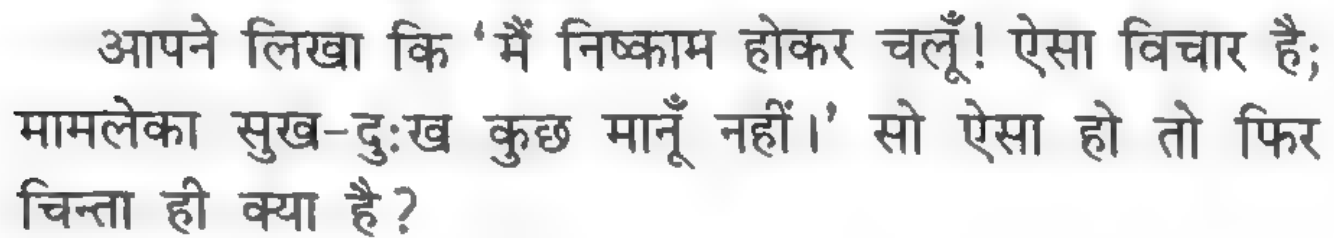 आपने लिखा कि ‘मैं निष्काम होकर चलूँ! ऐसा विचार है;
मामलेका सुख-दुःख कुछ मानूँ नहीं।’ सो ऐसा हो तो फिर
चिन्ता ही क्या है?